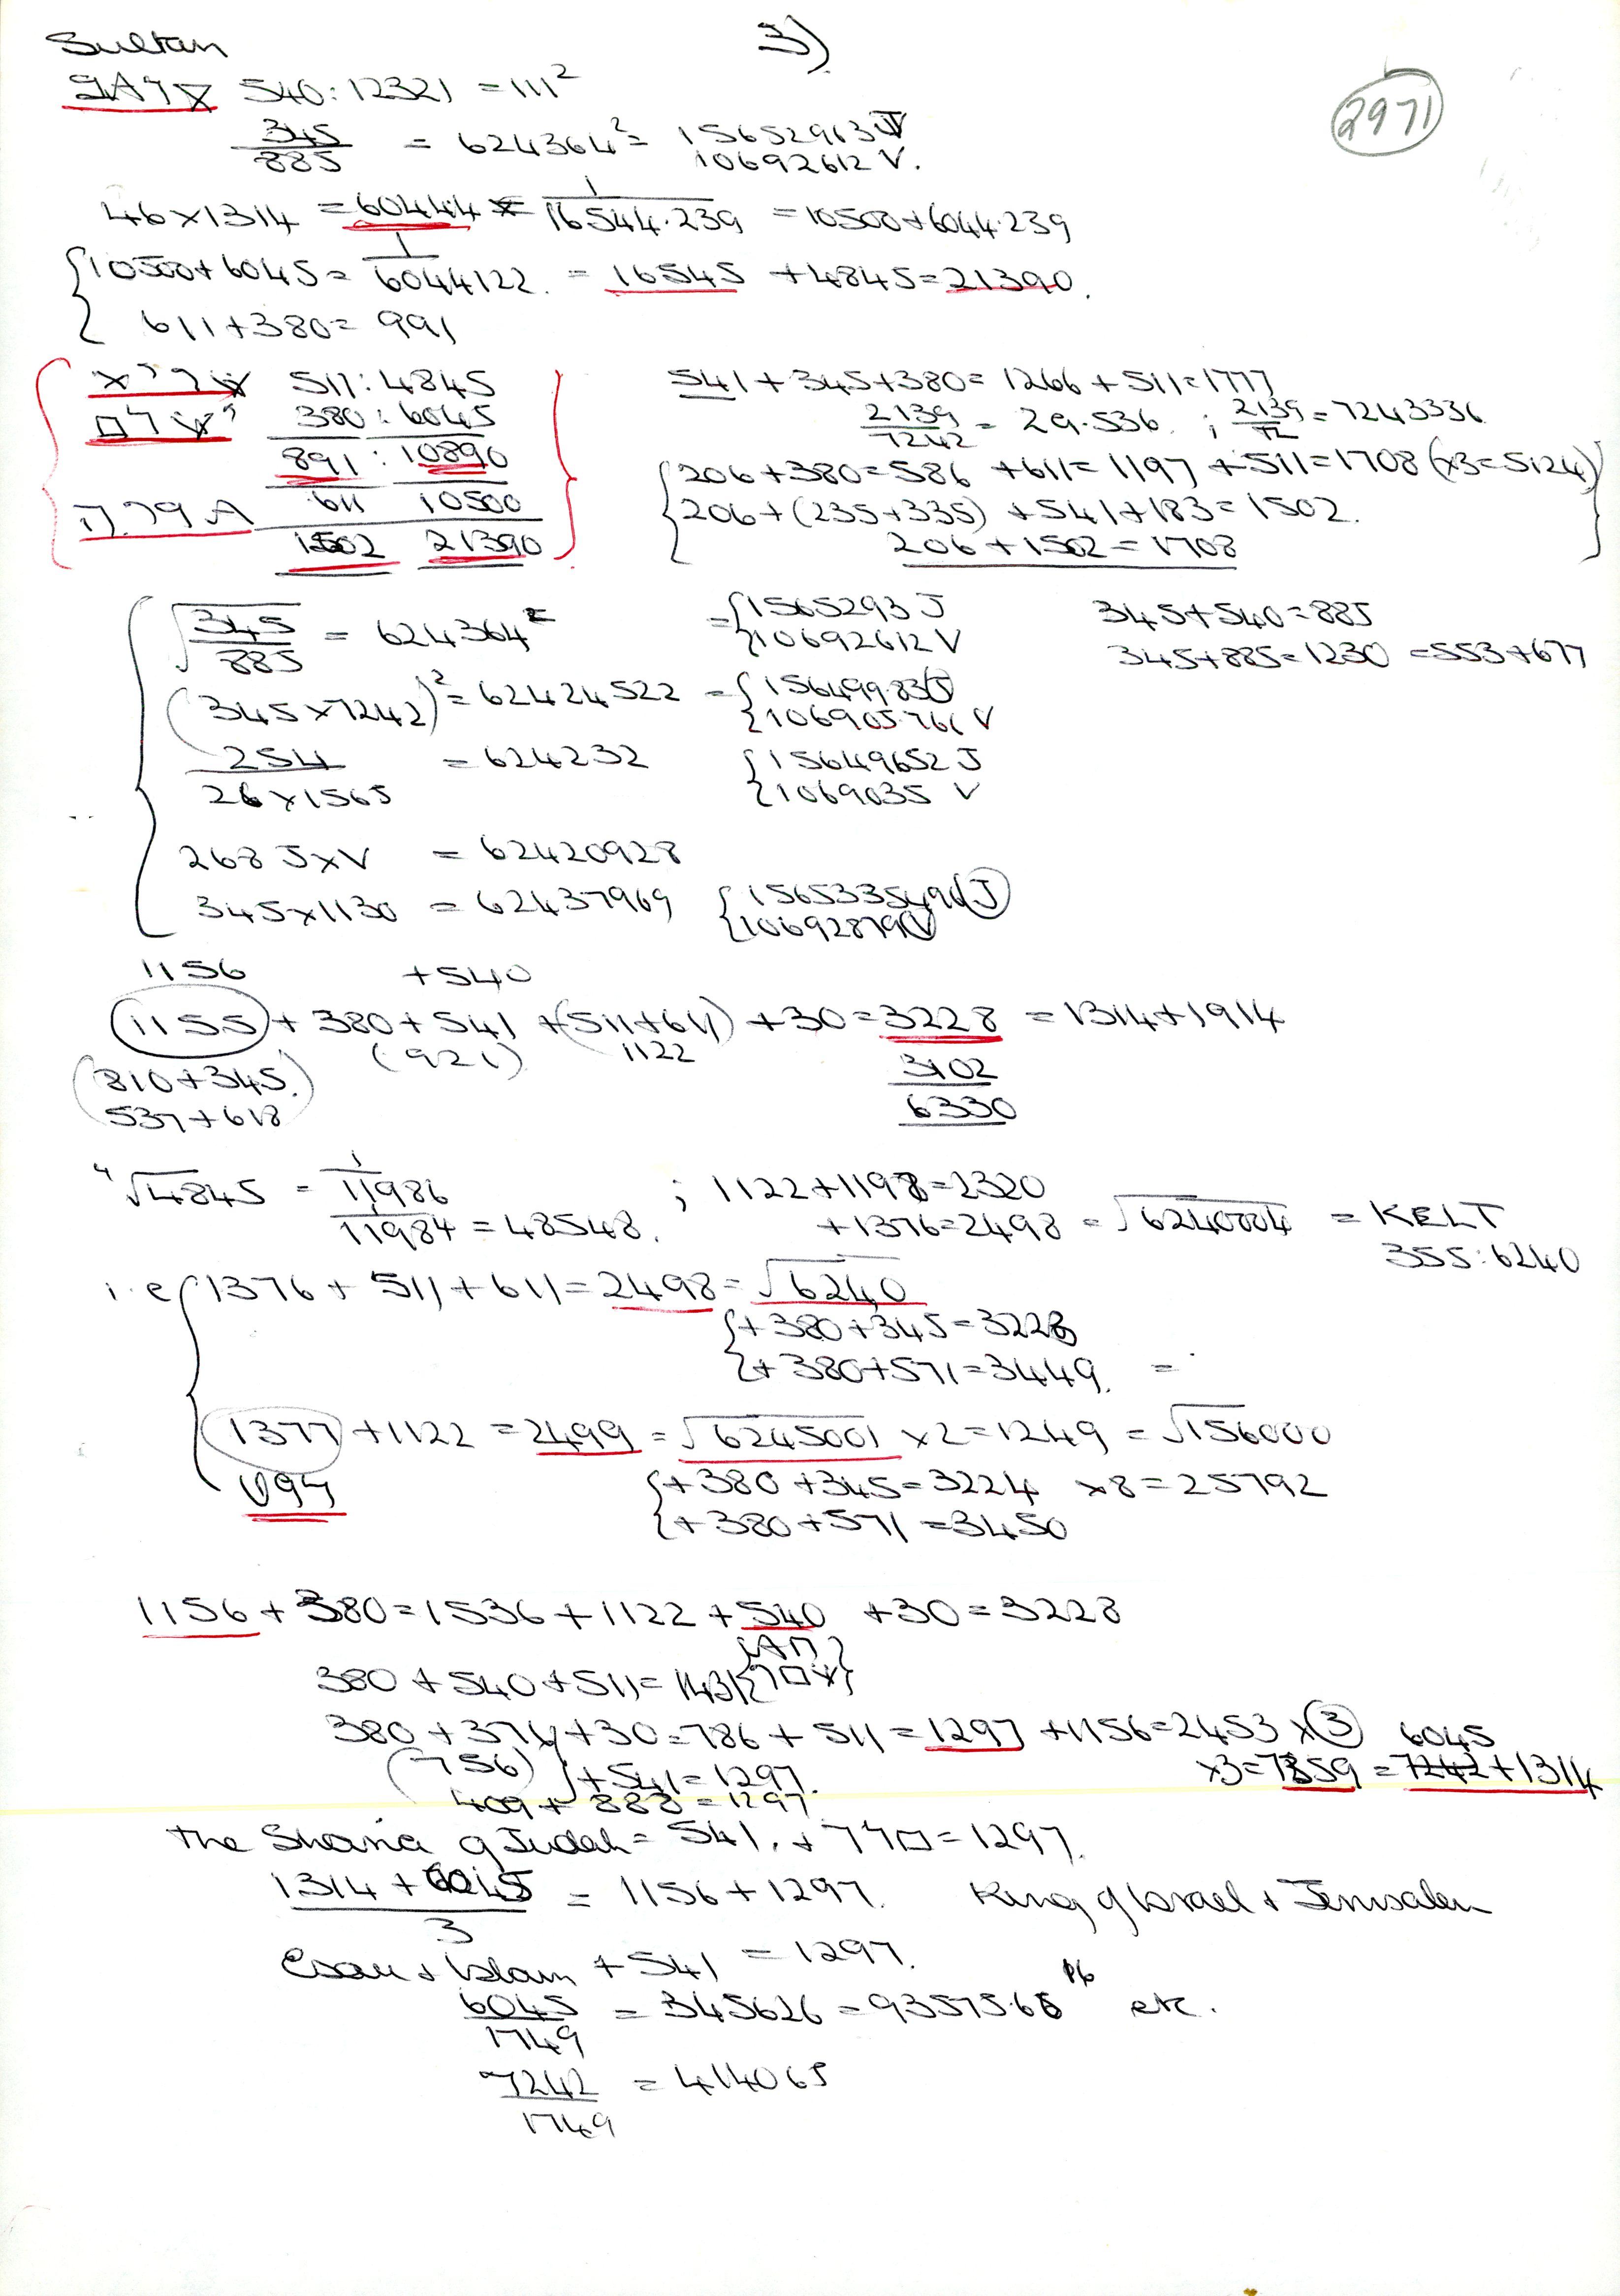 Sultan
3)
2971
540:12321 = 111²
345/885 = 624364² = 15652963 J
10692612 V.
46×1314 = 60444 = 1/16544.239 = 10500+6044.239
10500+6045 = 1/6044122. = 16545 +4845=21390.
611+380= 991
511:4845
380:6045
891:10890
611 10500
1502 21390
541+345+380=1266+511=1777
2139/7242 = 29.536. ; 2139/π = 7243336
206+380=586 +611=1197 +511=1708 (×3=5124)
206+(235+335) +541+183=1502.
206+1502=1708
√345/885 = 624364² = {1565293 J
{10692612 V
345+540=885
345+885=1230 =553+677
(345×7242)² = 62424522 = {156499.83 J
{106905.766 V
254/26×1565 = 624232 {15649652 J
{1069035 V
268 J×V = 62420928
345×1130 = 62437969 {1565335496 J
{10692879 V
1156 +540
1155 + 380+541 +(511+611) +30=3228 =1314+1914
(921) 1122
3102
6330
(810+345.)
537+618
⁴√4845 = 1/11986 ; 1122+1198=2320
1/11984 = 48548. +1376=2498 = √6240004 = KELT
355:6240
i.e {1376+511+611=2498=√6240
{+380+345=3223
{+380+571=3449. =
1377+1122=2499=√6245001 ×2=1249=√156000
{+380+345=3224 ×8=25792
{+380+571=3450
1156+380=1536+1122+540 +30=3228
380+540+511=1431
380+376+30=786+511=1297+1156=2453×3 6045
(756) }+541=1297. ×3=7359=7242+1314
409+888=1297
The Sharia of Judah= 541.+ =1297.
1314+6045/3 = 1156+1297. King of Israel + Jerusalem
Esau + Islam +541 = 1297.
6045/1749 = 345626=93575.66 etc.
7242/1749 = 414065